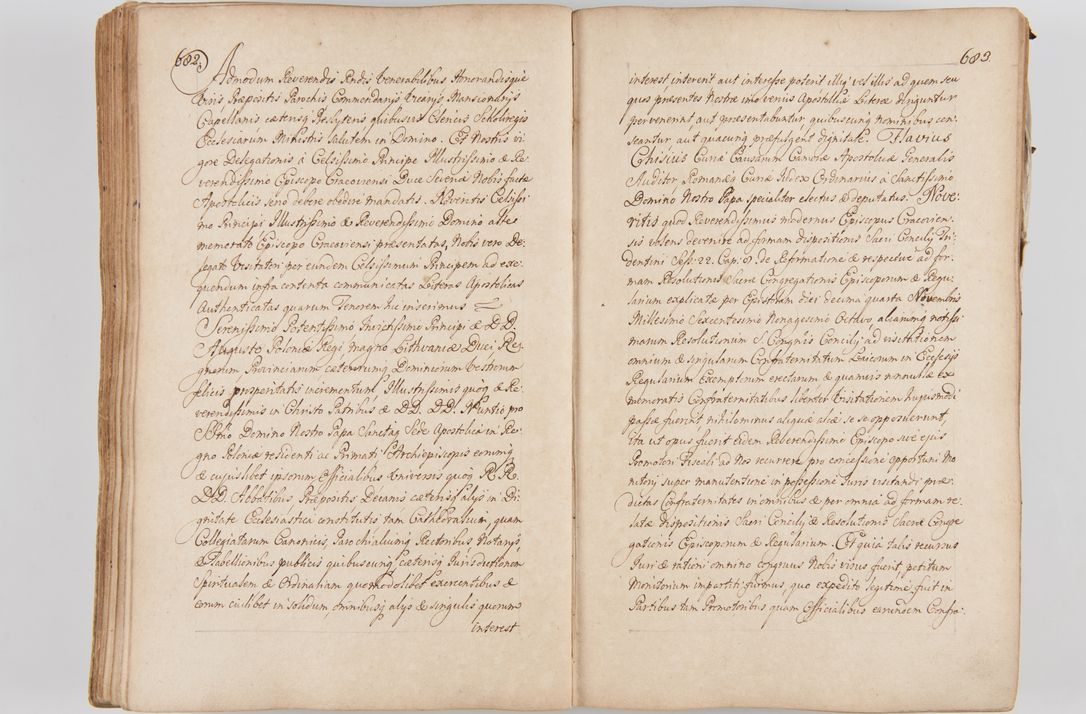 682.
Admodum Reverendis Rndis Venerabilibus Honorandisque
Viris Præpositis Parochis Commendarijs Vicarijs Mansionarijs
Capellanis cæterisq Presbyteris quibusvis Clericis Scholiregis
Ecclesiarum Ministris Salutem in Domino. Et Nostris vi
gore Delegationis à Celsissimo Principe Illustrissimo & Re
verendissimo Episcopo Cracoviensi Duce Severiæ Nobis factæ
Apostolicis seriò debere obedire mandatis. Noveritis Celsissi
mo Principi Illustrissimo & Reverendissimo Domino altè
memorato Episcopo Cracoviensi præsentatas, Nobis vero De
legati Visitatori per eundem Celsissimum Principem ad exe
quendum infra contenta communicatas Literas Apostolicas
Authenticatas quarum Tenorem hic inserimus
Serenissimo Potentissimo Invictissimo Principi & D.D.
Augusto Poloniæ Regi, magno Lithvaniæ Duci Reg
norum Provinciarum cæterorumq Dominiorum Vestrorum
felicis prosperitatis incrementum Illustrissimis quoq & Re
verendissimis in Christo Patribus & DD. DD. Nuntio pro
SSmo Domino Nostro Papa Sanctaq Sede Apostolica in Re
gno Poloniæ residenti ac Primati Archiepiscopis eorumq
& cujuslibet ipsorum Officialibus Universis quoq R.R.
D.D. Abbatibus Præpositis Decanis cæterisq alijs in Di
gnitate Ecclesiastica constitutis tam Cathedralium, quam
Collegiatarum Canonicis, Parochialiumq Rectoribus Notarijs,
& Tabellionibus publicis quibuscunq cæterisq Jurisdictionem
Spiritualem & Ordinariam quomodolibet exercentibus &
eorum cuilibet in solidum, omnibusq alijs & singulis quorum
interest
683.
interest, intererit aut interesse poterit illiq vel illis ad quem seu
quos præsentes Nostræ imo verius Apostolicæ Literæ dirigentur
pervenerint aut præsentabuntur quibuscunq nominibus cen
seantur aut quacunq præfulgent dignitate. Flavius
Ghisius Curiæ Causarum Cameræ Apostolicæ Generalis
Auditor Romanæq Curiæ Judex Ordinarius à Sanctissimo
Domino Nostro Papa specialiter electus & deputatus. Nove:
ritis quod Reverendissimus modernus Episcopus Cracovien:
sis volens devenire ad formam dispositionis Sacri Concilij Tri:
dentini Sess: 22. Cap: 8. de Reformatione & respectivè ad for:
mam Resolutionis Sacræ Congregationis Episcoporum & Regu:
larium explicatæ per Epistolam diei decima quarta Novembris
Millesimo Sexcentesimo Nonagesimo Octavo aliarumq notissi
marum Resolutionum S. Congnis Concilij ad visitationem
omnium & singularum Confraternitatum Laicorum in Ecclesijs
Regularium Exemptorum erectarum & quamvis nonnullæ ex
memoratis Confraternitatibus libenter Visitationem hujusmodi
passæ fuerint, nihilominus aliquæ aliæ se se opposuerunt,
ita ut opus fuerit eidem Reverendissimo Episcopo sive ejus
Promotori Fiscali ad Nos recurrere pro concessione opportuni Mo
nitorij super manutentione in possessione Juris visitandi præ:
dictas Confraternitates in omnibus & per omnia ad formam re:
latæ dispositionis Sacri Concilij & Resolutionis Sacræ Congre
gationis Episcoporum & Regularium. Et quia talis recursus
Juri & rationi omnino congruus Nobis visus fuerit petitum
Monitorium impartiti fuimus, quo expedito legitimè fuit in
Partibus tam Promotoribus quam Officialibus earundem Confra: